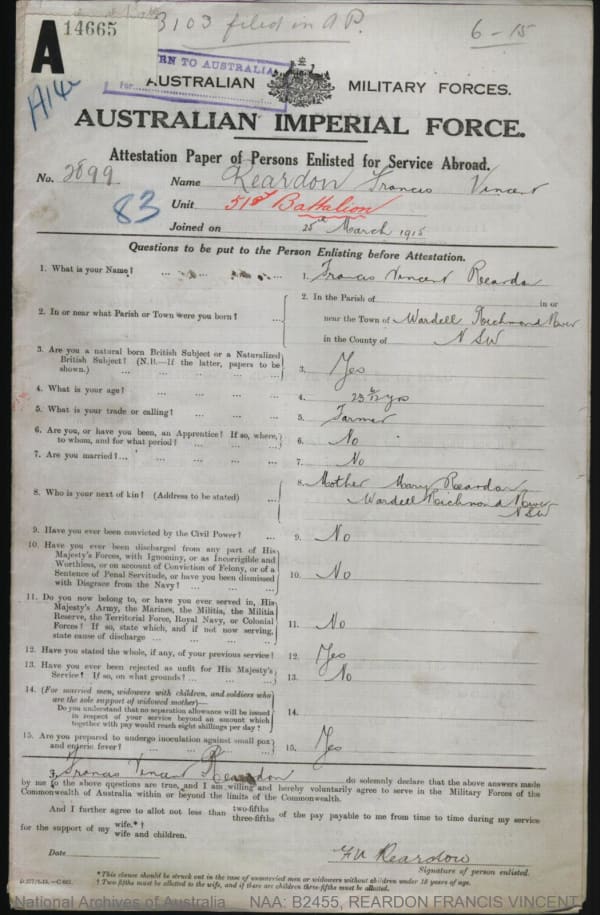 3103 filed in A.P.
6-15
A 14665
RN TO AUSTRALIA
for
AUSTRALIAN MILITARY FORCES.
AUSTRALIAN IMPERIAL FORCE.
Attestation Paper of Persons Enlisted for Service Abroad.
No. 2899 Name Reardon Francis Vincent
83 Unit 51st Battalion
Joined on 25th March 1915
Questions to be put to the Person Enlisting before Attestation.
1. What is your Name? ... ... ... 1. Francis Vincent Reardon
2. In or near what Parish or Town were you born? ... 2. In the Parish of in or
near the Town of Wardell Richmond River
in the County of NSW
3. Are you a natural born British Subject or a Naturalized
British Subject? (N.B.—If the latter, papers to be
shown.) ... ... ... ... 3. Yes
4. What is your age? ... ... ... 4. 23 yrs
5. What is your trade or calling? ... ... ... 5. Farmer
6. Are you, or have you been, an Apprentice? If so, where,
to whom, and for what period? ... ... 6. No
7. Are you married?... ... ... ... 7. No
8. Who is your next of kin? (Address to be stated) ... 8. Mother Mary Reardon
Wardell Richmond River
NSW
9. Have you ever been convicted by the Civil Power? ... 9. No
10. Have you ever been discharged from any part of His
Majesty's Forces, with Ignominy, or as Incorrigible and
Worthless, or on account of Conviction of Felony, or of a
Sentence of Penal Servitude, or have you been dismissed
with Disgrace from the Navy? ... ... ... 10. No
11. Do you now belong to, or have you ever served in, His
Majesty's Army, the Marines, the Militia, the Militia
Reserve, the Territorial Force, Royal Navy, or Colonial
Forces? If so, state which, and if not now serving,
state cause of discharge ... ... ... ... 11. No
12. Have you stated the whole, if any, of your previous service? 12. Yes
13. Have you ever been rejected as unfit for His Majesty's
Service? If so, on what grounds? ... ... 13. No
14. (For married men, widowers with children, and soldiers who
are the sole support of widowed mother)—
Do you understand that no separation allowance will be issued
in respect of your service beyond an amount which
together with pay would reach eight shillings per day? 14.
15. Are you prepared to undergo inoculation against small pox
and enteric fever? ... ... ... ... 15. Yes
I, Francis Vincent Reardon do solemnly declare that the above answers made
by me to the above questions are true, and I am willing and hereby voluntarily agree to serve in the Military Forces of the
Commonwealth of Australia within or beyond the limits of the Commonwealth.
And I further agree to allot not less than two-fifths three-fifths of the pay payable to me from time to time during my service
for the support of my wife,*† wife and children.
Date
F V Reardon
Signature of person enlisted.
*This clause should be struck out in the case of unmarried men or widowers without children under 18 years of age.
† Two-fifths must be allotted to the wife, and if there are children three-fifths must be allotted.
National Archives of Australia NAA: B2455, REARDON FRANCIS VINCENT